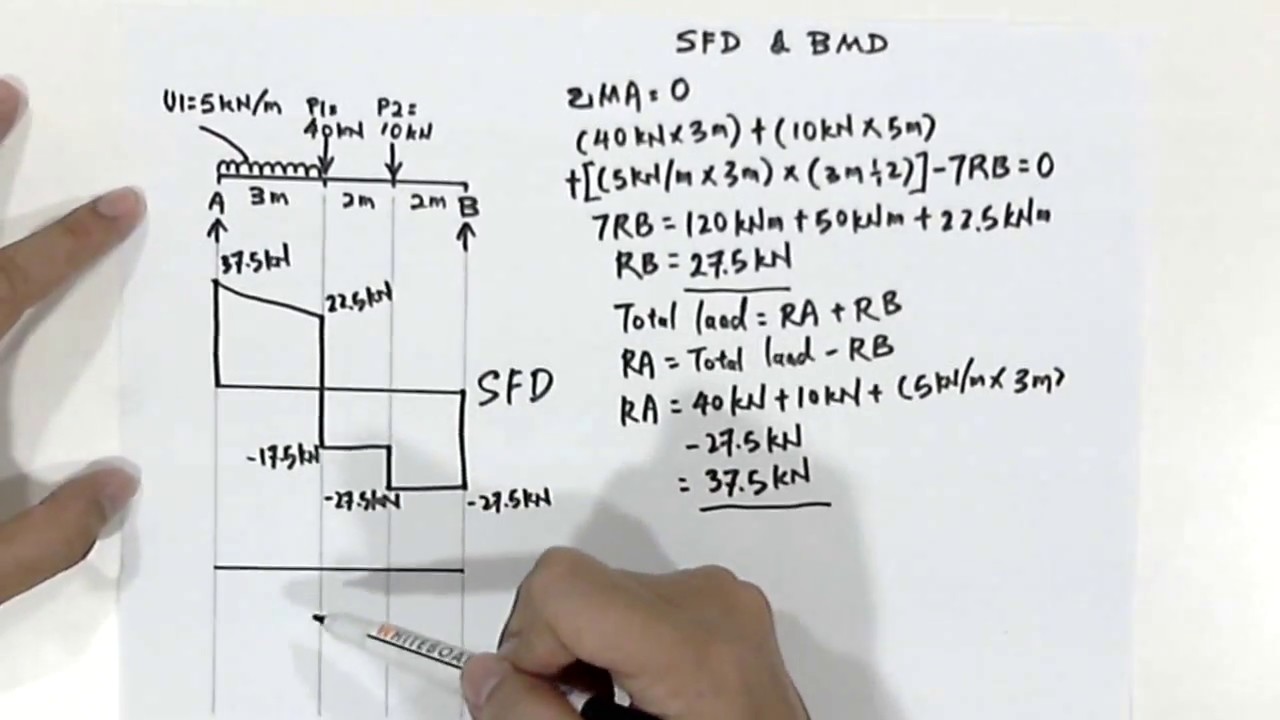 SFD & BMD
U1=5kN/m P1= P2=
40kN 10kN
3m 2m 2m
A B
37.5kN
22.5kN
SFD
-17.5kN
-27.5kN -27.5kN
ΣMA=0
(40kN×3m)+(10kN×5m)
+[(5kN/m×3m)×(3m÷2)]-7RB=0
7RB=120kNm+50kNm+22.5kNm
RB=27.5kN
Total load=RA+RB
RA=Total load-RB
RA=40kN+10kN+(5kN/m×3m)
-27.5kN
=37.5kN
WHITEBOA